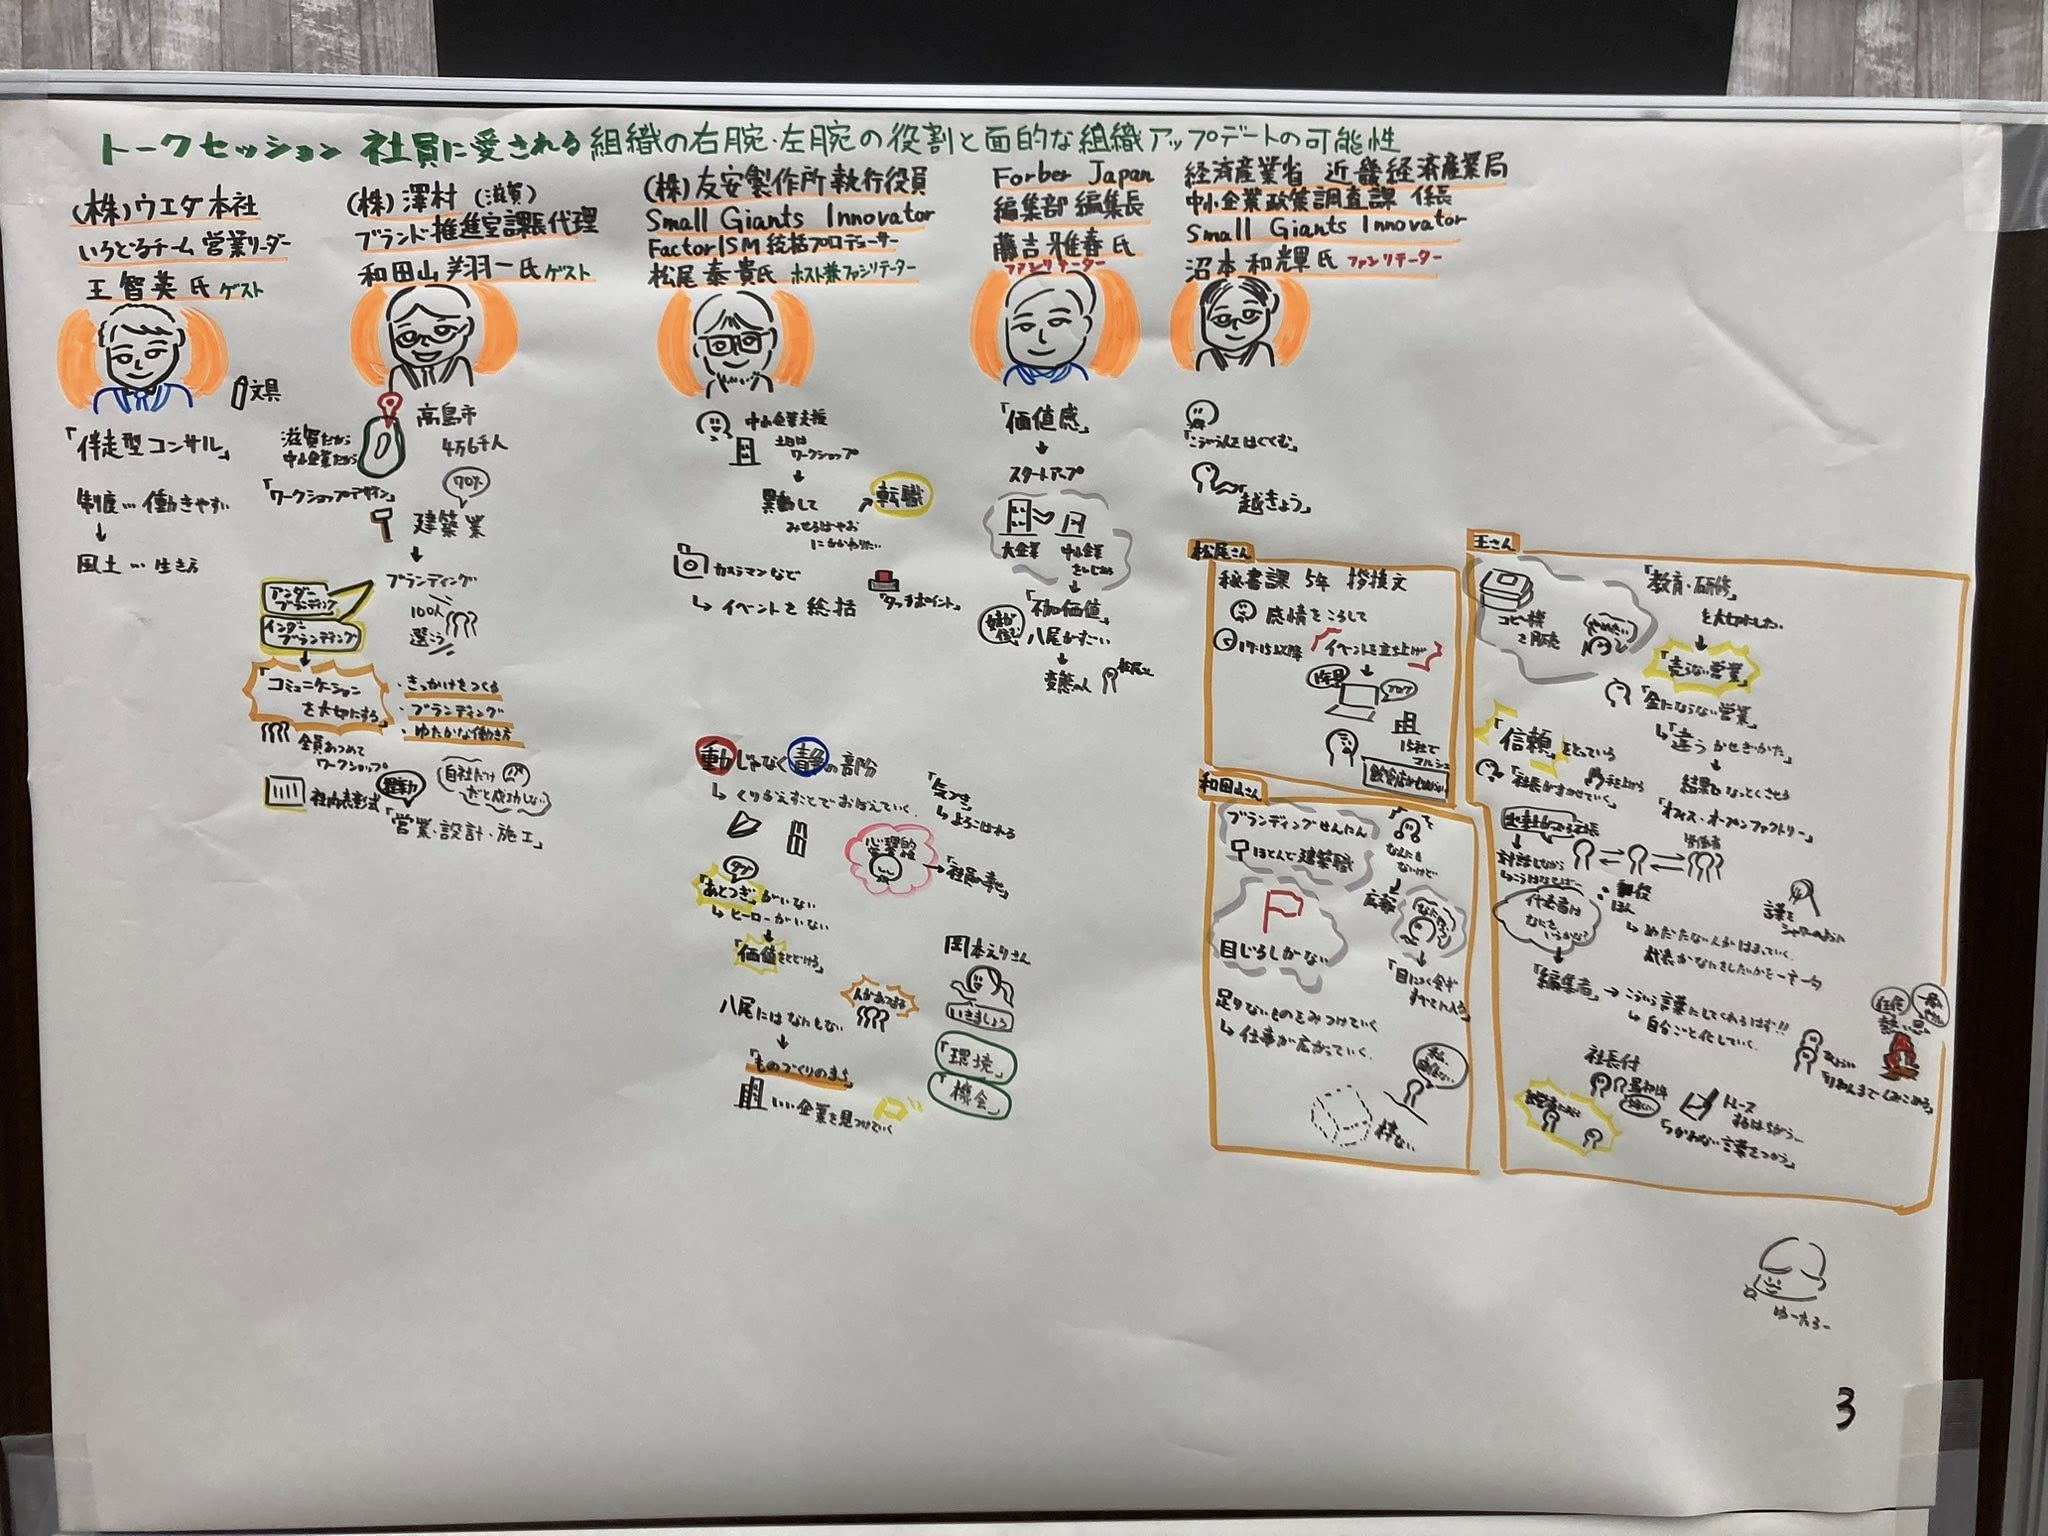 トークセッション 社員に愛される組織の右腕・左腕の役割と面的な組織アップデートの可能性
(株)ウエダ本社
いろどるチーム 営業リーダー
王 智英氏 ゲスト
文具
「伴走型コンサル」
制度…働きやすい
↓
風土…生き方
(株)澤村(滋賀)
ブランド推進室課長代理
和田山 翔一氏 ゲスト
高島市
4万6千人
滋賀だから
中小企業だから
「ワークショップデザイン」
70%
建築業
↓
ブランディング
100人
選ぼう
アンダー
ブランディング
インナー
ブランディング
↓
「コミュニケーション
を大切にする」
・きっかけをつくる
・ブランディング
・ゆたかな働き方
全員あつめて
ワークショップ
社内表彰式
自社だけ
だと成功しない
「営業・設計・施工」
(株)友安製作所執行役員
Small Giants Innovator
FactorISM 統括プロデューサー
松尾 泰貴氏 ホスト兼ファシリテーター
中小企業支援
土日は
ワークショップ
↓
異動して
転職
カメラマンなど
↳イベントを総括
「タッチポイント」
動じゃなく静の部分
↳くりかえすことでおぼえていく
「気づき」
↳よろこばれる
心理的
→「社員の幸せ」
「あとつぎ」がいない
↳ヒーローがいない
↓
「価値をとどける」
八尾にはなにもない
↓
「ものづくりのまち」
いい企業を見つけていく
人があつまる
岡本えりさん
いきましょう
「環境」
「機会」
Forber Japan
編集部 編集長
藤吉 雅春氏
ファシリテーター
「価値感」
↓
スタートアップ
大企業
中小企業
↓
「不加価値」
八尾がすごい
↓
変態の人
経済産業省 近畿経済産業局
中小企業政策調査課 係長
Small Giants Innovator
沼本 和輝氏 ファシリテーター
「越きょう」
松尾さん
秘書課 5年 挨拶文
感情をころして
17:15以降 「イベントを立ち上げ」
↓
ブログ
15社で
マルシェ
和田山さん
ブランディングせんにん
ほとんど建築職
目じるしがない
足りないものをみつけていく
↳仕事が広がっていく
なんにも
ないけど
↓
広報
↓
枠ない
王さん
コピー機
を販売
やめたい
「教育・研修」
を大切にした
↓
「売らない営業」
「金にならない営業」
↳「違うかせぎかた」
↓
結果でなっとくさせる
「オフィス・オープンファクトリー」
「信頼」をとっている
「社長がまかせていく」
労働者
対話しながら
代表者は
なにを
いうかな?
言葉を
シャワーのように
↳めだたない人がはまっていく
代表がなにをしたいかを一言一句
「編集者」→こういう言葉にしてくれるはず!!
↳自分ごと化していく
社長付
トレース
するはちがう…
「つかわない言葉をつかう」
ゆーたろー
3